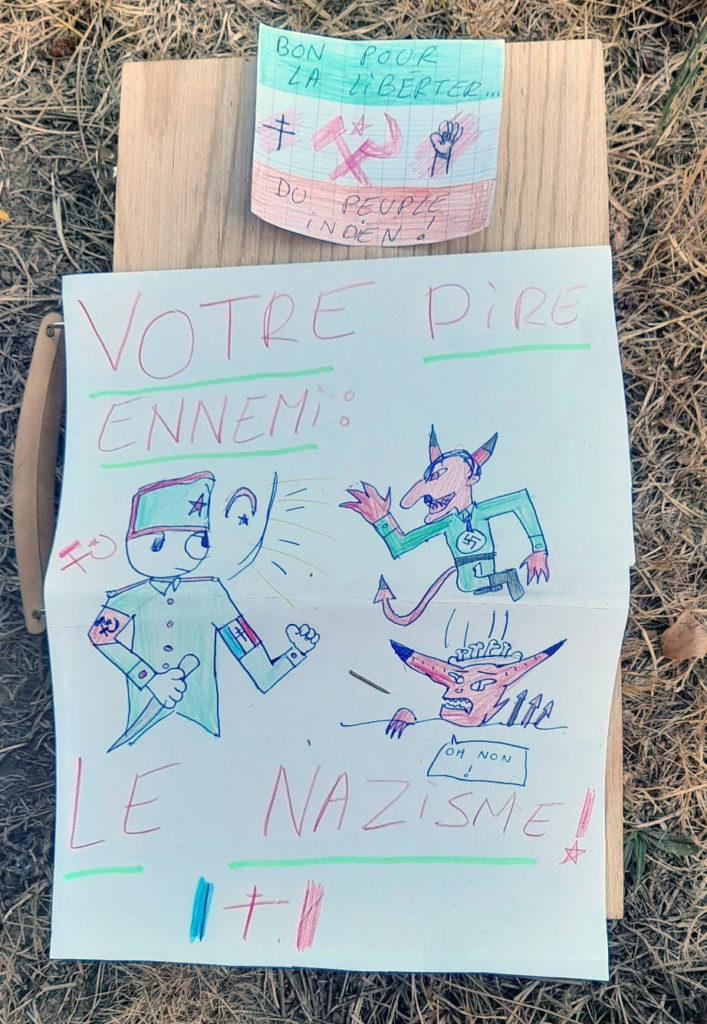 BON POUR
LA LiBERTER...
DU PEUPLE
iNDiEN!
VOTRE PiRE
ENNEMi:
OH NON
!
LE NAZiSME!